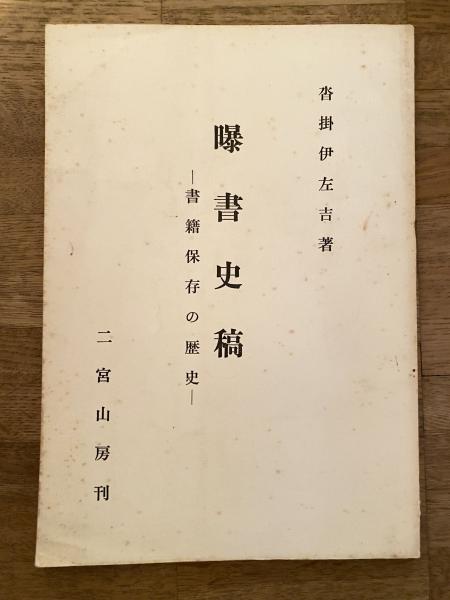 沓掛伊左吉著
曝書史稿
―書籍保存の歴史―
二宮山房刊